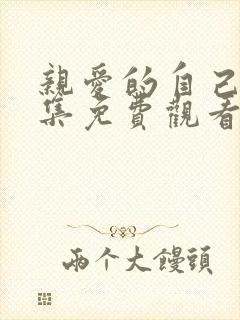 親愛的自己
集免費觀看
兩个大饅頭